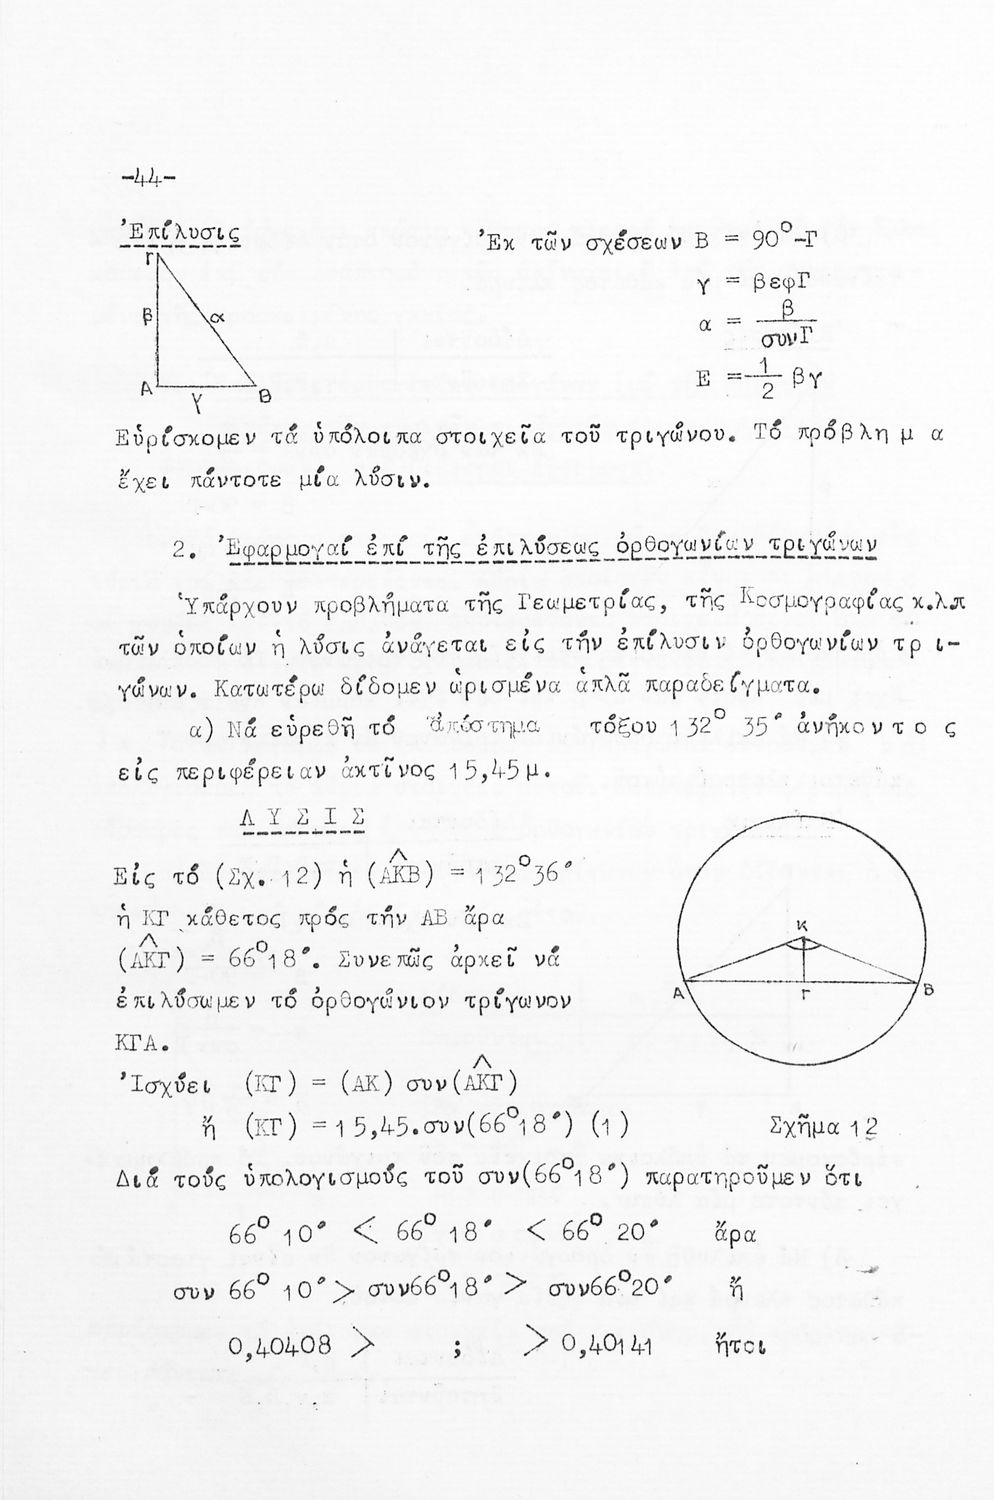 -44-
Ἐπίλυσις
Ἐκ τῶν σχέσεων Β = 90°-Γ
γ = βεφΓ
α = β / συνΓ
Ε = 1/2 βγ
Γ
β α
Α γ Β
Εὑρίσκομεν τά ὑπόλοιπα στοιχεῖα τοῦ τριγώνου. Τό πρόβλημα
ἔχει πάντοτε μία λύσιν.
2. Ἐφαρμογαί ἐπί τῆς ἐπιλύσεως ὀρθογωνίων τριγώνων
Ὑπάρχουν προβλήματα τῆς Γεωμετρίας, τῆς Κοσμογραφίας κ.λ.π
τῶν ὁποίων ἡ λύσις ἀνάγεται εἰς τήν ἐπίλυσιν ὀρθογωνίων τρι-
γώνων. Κατωτέρω δίδομεν ὡρισμένα ἁπλᾶ παραδείγματα.
α) Νά εὑρεθῆ τό ἀπόστημα τόξου 132° 35' ἀνήκοντος
εἰς περιφέρειαν ἀκτῖνος 15,45μ.
ΛΥΣΙΣ
Εἰς τό (Σχ. 12) ἡ (ΑΚ̂Β) = 132°36'
ἡ ΚΓ κάθετος πρός τήν ΑΒ ἄρα
(ΑΚ̂Γ) = 66°18'. Συνεπῶς ἀρκεῖ νά
ἐπιλύσωμεν τό ὀρθογώνιον τρίγωνον
ΚΓΑ.
Κ
Α Γ Β
Ἰσχύει (ΚΓ) = (ΑΚ) συν(ΑΚ̂Γ)
ἤ (ΚΓ) = 15,45.συν(66°18') (1)
Σχῆμα 12
Διά τούς ὑπολογισμούς τοῦ συν(66°18') παρατηροῦμεν ὅτι
66° 10' < 66° 18' < 66° 20' ἄρα
συν 66° 10' > συν66°18' > συν66°20' ἤ
0,40408 > ; > 0,40141 ἤτοι